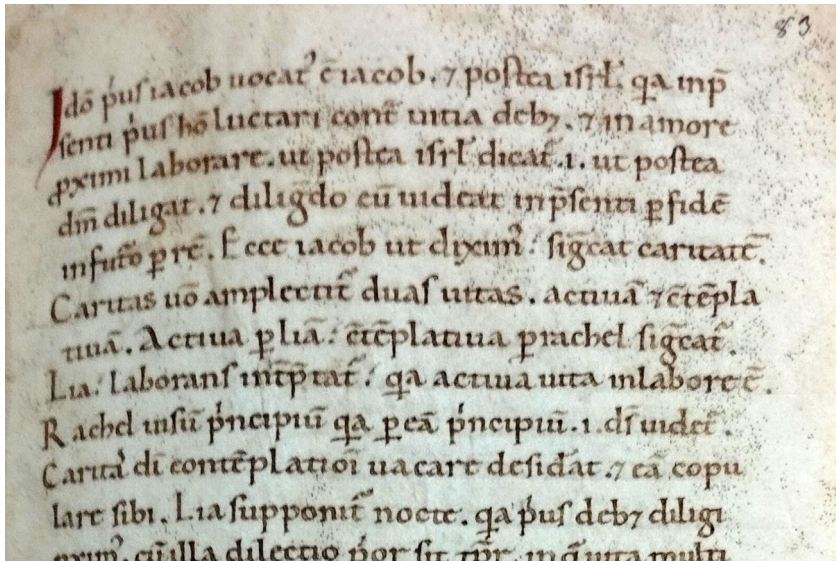 83
Idō p̓us iacob uocat᷒ ē iacob. ⁊ postea isrl̄. q̄a inp̄
senti p̓us hō luctari cont̄ uitia debꝫ. ⁊ in amore
ꝓximi laborare. ut postea isrl̄ dicat̄ .i. ut postea
dm̄ diligat. ⁊ diligēdo eū uideat in p̄senti ꝑ fidē
in futō ꝑ rē. Ecce iacob ut dixim᷒. sig̅cat caritatē.
Caritas uō amplectit̄ duas uitas. actiuā ⁊ cētēpla
tiuā. Actiua ꝑ liā. cētēplatiua ꝑ rachel sig̅cat᷒.
Lia. laborans int̄p̄tat᷒. q̄a actiua uita in labore ē.
Rachel uisū p̓ncipiū q̄a ꝑ eā p̓ncipiū .i. ds̄ uidet᷒.
Carita᷒ dī contēplatioī uacare desid̓at. ⁊ eā copu
lare sibi. Lia supponit᷒ nocte. q̄a p̓us debꝫ diligi
ꝓxim᷒. cū illa dilectio p̓or sit